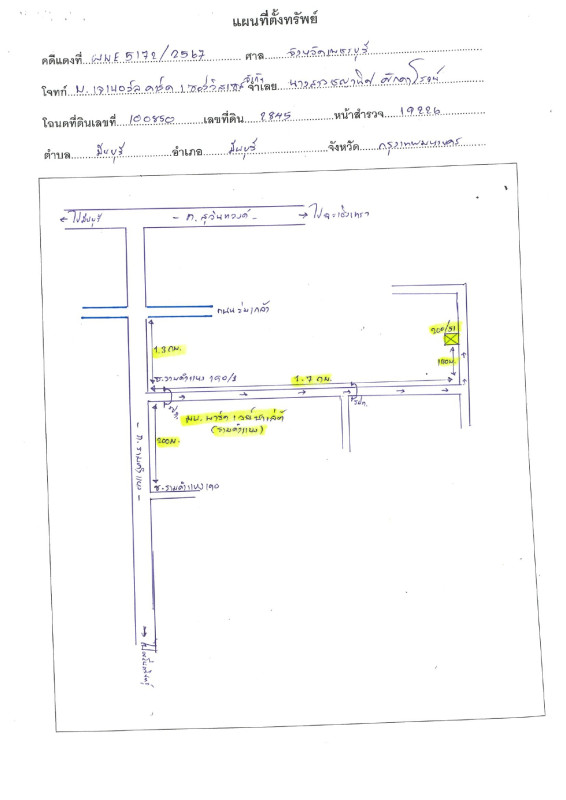 แผนที่ตั้งทรัพย์
คดีแดงที่ ผบE 5172/2567 ศาล จังหวัดเพชรบุรี
โจทก์ บ. เจเนอรัล คาร์ด เซอร์วิสเซส จำกัด จำเลย นางสาว
โฉนดที่ดินเลขที่ 100850 เลขที่ดิน 2845 หน้าสำรวจ 19226
ตำบล มีนบุรี อำเภอ มีนบุรี จังหวัด กรุงเทพมหานคร
← ไปมีนบุรี - ถ. สุวินทวงศ์ - → ไปฉะเชิงเทรา
ถนนร่มเกล้า
1.3 กม.
100ม.
ซ.รามคำแหง 190/1
1.7 กม.
รปภ.
มบ. พาร์ค
(รามคำแหง)
200ม.
- ถ. รามคำแหง -
ซ.รามคำแหง 190